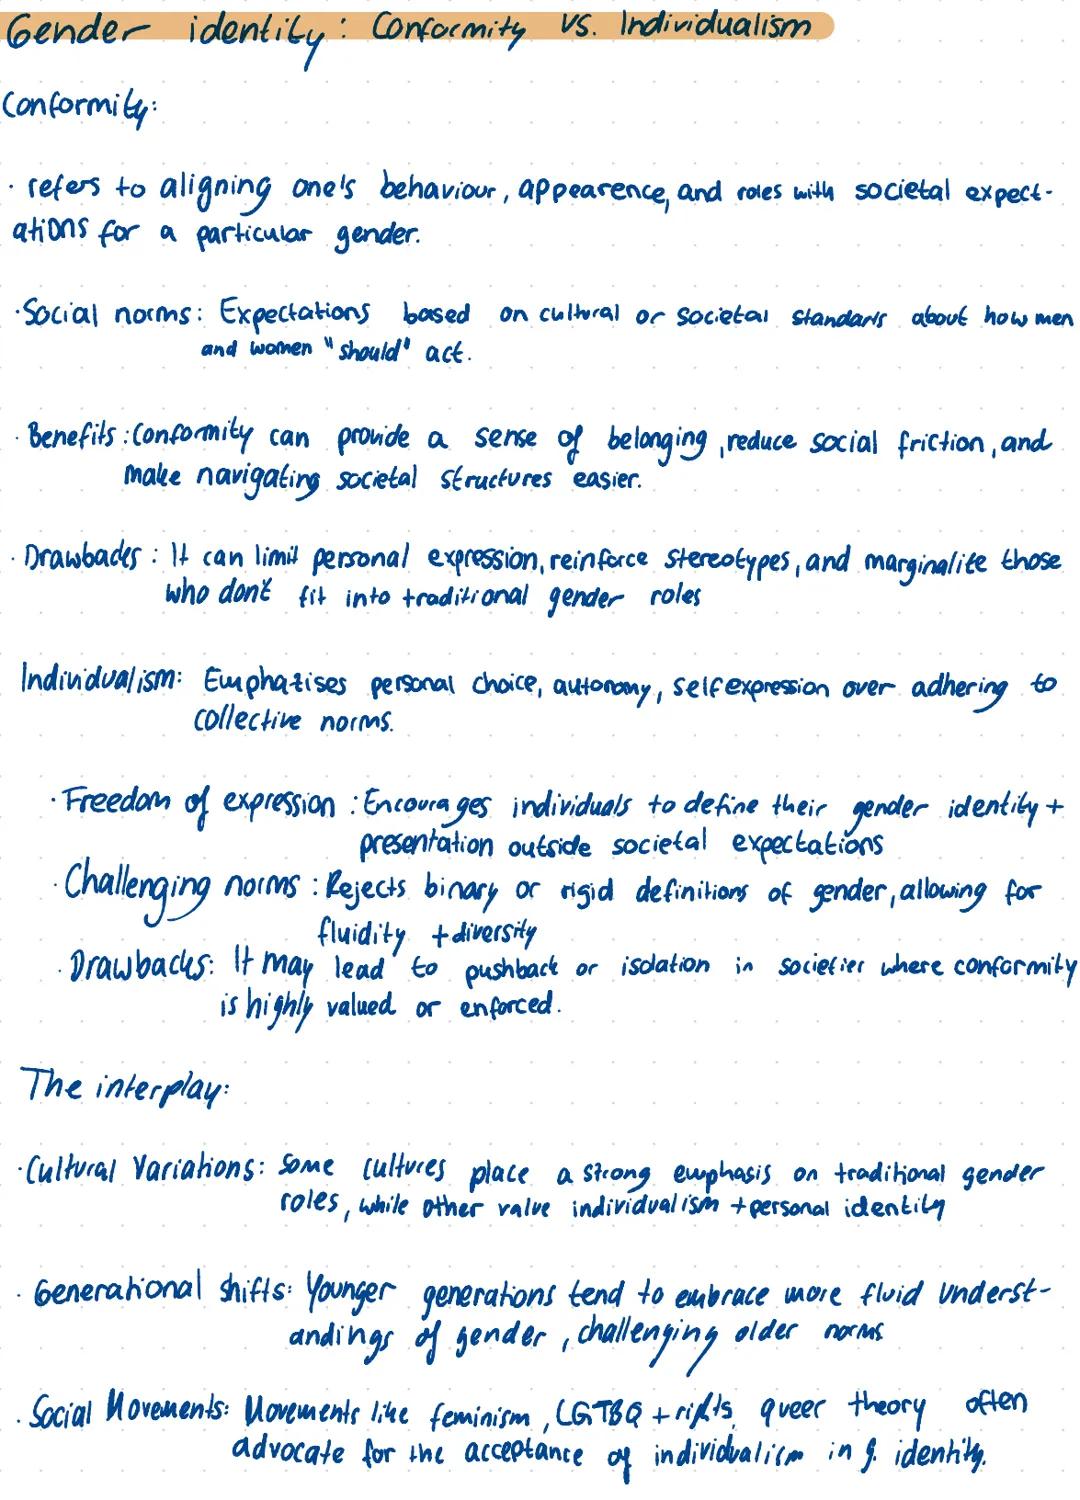 Gender identity: Conformity vs. Individualism
Conformity:
· refers to aligning one's behaviour, appearence, and roles with societal expect-
ations for a particular gender.
· Social norms: Expectations based on cultural or societal standars about how men
and women "should" act.
· Benefits: Conformity can provide a sense of belonging, reduce social friction, and
make navigating societal structures easier.
· Drawbacks: It can limit personal expression, reinforce stereotypes, and marginalite those
who don't fit into traditional gender roles
Individualism: Emphatises personal choice, autonomy, selfexpression over adhering to
collective norms.
· Freedom of expression: Encourages individuals to define their gender identity +
presentation outside societal expectations
· Challenging norms: Rejects binary or rigid definitions of gender, allowing for
fluidity + diversity
· Drawbacks: It may lead to pushback or isolation in societies where conformity
is highly valued or enforced.
The interplay:
· Cultural Variations: Some cultures place a strong emphasis on traditional gender
roles, while other value individualism + personal identity
· Generational shifts: Younger generations tend to embrace more fluid underst-
andings of gender, challenging older norms
· Social Movements: Movements like feminism, LGTBQ + rights, queer theory often
advocate for the acceptance of individualism in g. identity.